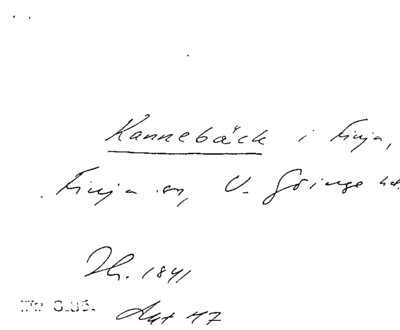 Kannebäck i Finja,
Finja sn, V. Göinge hd.
Jh. 1841
Akt 47